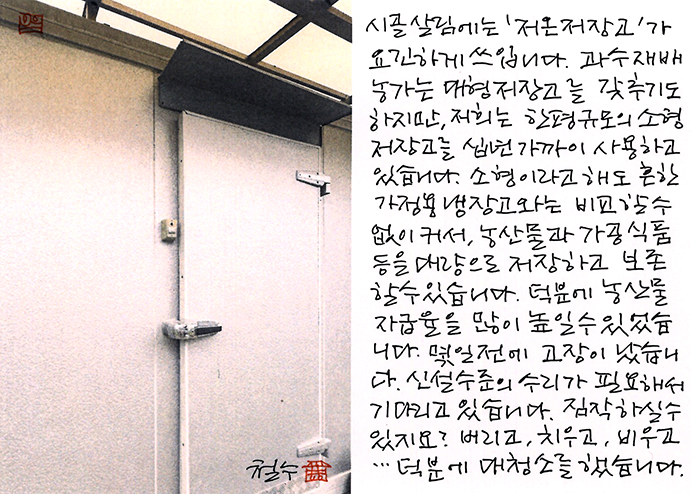 시골 살림에는 '저온저장고'가
요긴하게 쓰입니다. 과수재배
농가는 대형저장고를 갖추기도
하지만, 저희는 한평규모의 소형
저장고를 십년 가까이 사용하고
있습니다. 소형이라고 해도 흔한
가정용 냉장고와는 비교할 수
없이 커서, 농산물과 가공식품
등을 대량으로 저장하고 보존
할 수 있습니다. 덕분에 농산물
자급율을 많이 높일 수 있었습
니다. 몇일전에 고장이 났습니
다. 신설수준의 수리가 필요해서
기다리고 있습니다. 짐작하실 수
있지요? 버리고, 치우고, 비우고
… 덕분에 대청소를 했습니다.
철수